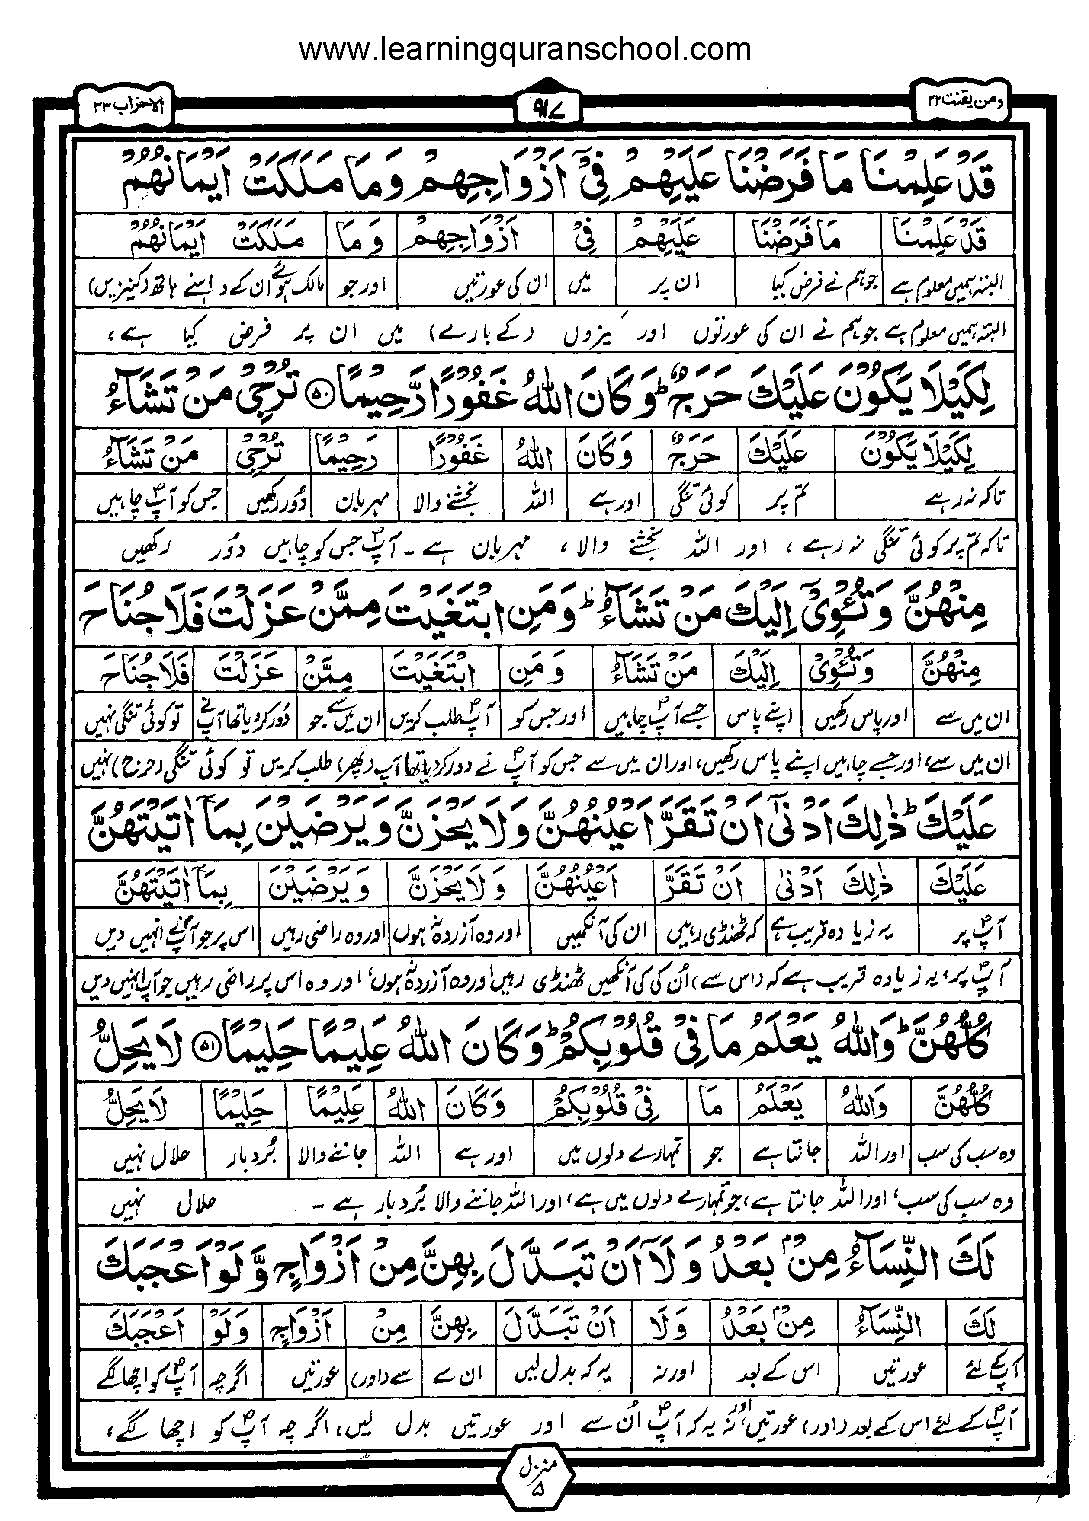 www.learningquranschool.com
ومن یقنت ۲۲
۹۱۷
الاحزاب ۳۳
قَدْ عَلِمْنَا مَا فَرَضْنَا عَلَيْهِمْ فِيْٓ اَزْوَاجِهِمْ وَمَا مَلَكَتْ اَيْمَانُهُمْ
قَدْ عَلِمْنَا مَا فَرَضْنَا عَلَيْهِمْ فِيْٓ اَزْوَاجِهِمْ وَمَا مَلَكَتْ اَيْمَانُهُمْ
البتہ ہمیں معلوم ہے جو ہم نے فرض کیا ان پر میں ان کی عورتیں اور جو مالک ہوئے ان کے داہنے ہاتھ (کنیزیں)
البتہ ہمیں معلوم ہے جو ہم نے ان کی عورتوں اور کنیزوں (کے بارے) میں ان پر فرض کیا ہے،
لِكَيْلَا يَكُوْنَ عَلَيْكَ حَرَجٌ ؕ وَكَانَ اللّٰهُ غَفُوْرًا رَّحِيْمًا ﴿۵۰﴾ تُرْجِيْ مَنْ تَشَآءُ
لِكَيْلَا يَكُوْنَ عَلَيْكَ حَرَجٌ وَكَانَ اللّٰهُ غَفُوْرًا رَحِيْمًا تُرْجِيْ مَنْ تَشَآءُ
تاکہ نہ رہے تم پر کوئی تنگی اور ہے اللہ بخشنے والا مہربان دُور رکھیں جس کو آپؐ چاہیں
تاکہ تم پر کوئی تنگی نہ رہے، اور اللہ بخشنے والا، مہربان ہے۔ آپؐ جس کو چاہیں دُور رکھیں
مِنْهُنَّ وَتُـْٔوِيْٓ اِلَيْكَ مَنْ تَشَآءُ ؕ وَمَنِ ابْتَغَيْتَ مِمَّنْ عَزَلْتَ فَلَا جُنَاحَ
مِنْهُنَّ وَتُـْٔوِيْٓ اِلَيْكَ مَنْ تَشَآءُ وَمَنِ ابْتَغَيْتَ مِمَّنْ عَزَلْتَ فَلَا جُنَاحَ
ان میں سے اور پاس رکھیں اپنے پاس جسے آپؐ چاہیں اور جس کو آپؐ طلب کریں ان میں سے جو دُور کر دیا تھا آپؐ نے تو کوئی تنگی نہیں
ان میں سے، اور جسے چاہیں اپنے پاس رکھیں، اور ان میں سے جس کو آپؐ نے دور کر دیا تھا آپ (پھر) طلب کریں تو کوئی تنگی (حرج) نہیں
عَلَيْكَ ؕ ذٰلِكَ اَدْنٰٓى اَنْ تَقَرَّ اَعْيُنُهُنَّ وَلَا يَحْزَنَّ وَيَرْضَيْنَ بِمَآ اٰتَيْتَهُنَّ
عَلَيْكَ ذٰلِكَ اَدْنٰى اَنْ تَقَرَّ اَعْيُنُهُنَّ وَلَا يَحْزَنَّ وَيَرْضَيْنَ بِمَآ اٰتَيْتَهُنَّ
آپؐ پر یہ زیادہ قریب ہے کہ ٹھنڈی رہیں ان کی آنکھیں اور وہ آزردہ نہ ہوں اور وہ راضی رہیں اس پر جو آپؐ نے انہیں دیں
آپؐ پر، یہ زیادہ قریب ہے کہ (اس سے) اُن کی آنکھیں ٹھنڈی رہیں اور وہ آزردہ نہ ہوں، اور وہ اس پر راضی رہیں جو آپؐ انہیں دیں
كُلُّهُنَّ ؕ وَاللّٰهُ يَعْلَمُ مَا فِيْ قُلُوْبِكُمْ ؕ وَكَانَ اللّٰهُ عَلِيْمًا حَلِيْمًا ﴿۵۱﴾ لَا يَحِلُّ
كُلُّهُنَّ وَاللّٰهُ يَعْلَمُ مَا فِيْ قُلُوْبِكُمْ وَكَانَ اللّٰهُ عَلِيْمًا حَلِيْمًا لَا يَحِلُّ
وہ سب کی سب اور اللہ جانتا ہے جو تمہارے دلوں میں اور ہے اللہ جاننے والا بُردبار حلال نہیں
وہ سب کی سب، اور اللہ جانتا ہے، جو تمہارے دلوں میں ہے، اور اللہ جاننے والا بُردبار ہے۔ حلال نہیں
لَكَ النِّسَآءُ مِنْۢ بَعْدُ وَلَآ اَنْ تَبَدَّلَ بِهِنَّ مِنْ اَزْوَاجٍ وَّلَوْ اَعْجَبَكَ
لَكَ النِّسَآءُ مِنْۢ بَعْدُ وَلَا اَنْ تَبَدَّلَ بِهِنَّ مِنْ اَزْوَاجٍ وَلَوْ اَعْجَبَكَ
آپؐ کے لئے عورتیں اس کے بعد اور نہ یہ کہ بدل لیں ان سے سے (اور) عورتیں اگرچہ آپؐ کو اچھا لگے
آپؐ کے لئے اس کے بعد (اور) عورتیں اور نہ یہ کہ آپؐ اُن سے اور عورتیں بدل لیں، اگرچہ آپؐ کو اچھا لگے،
منزل ۵